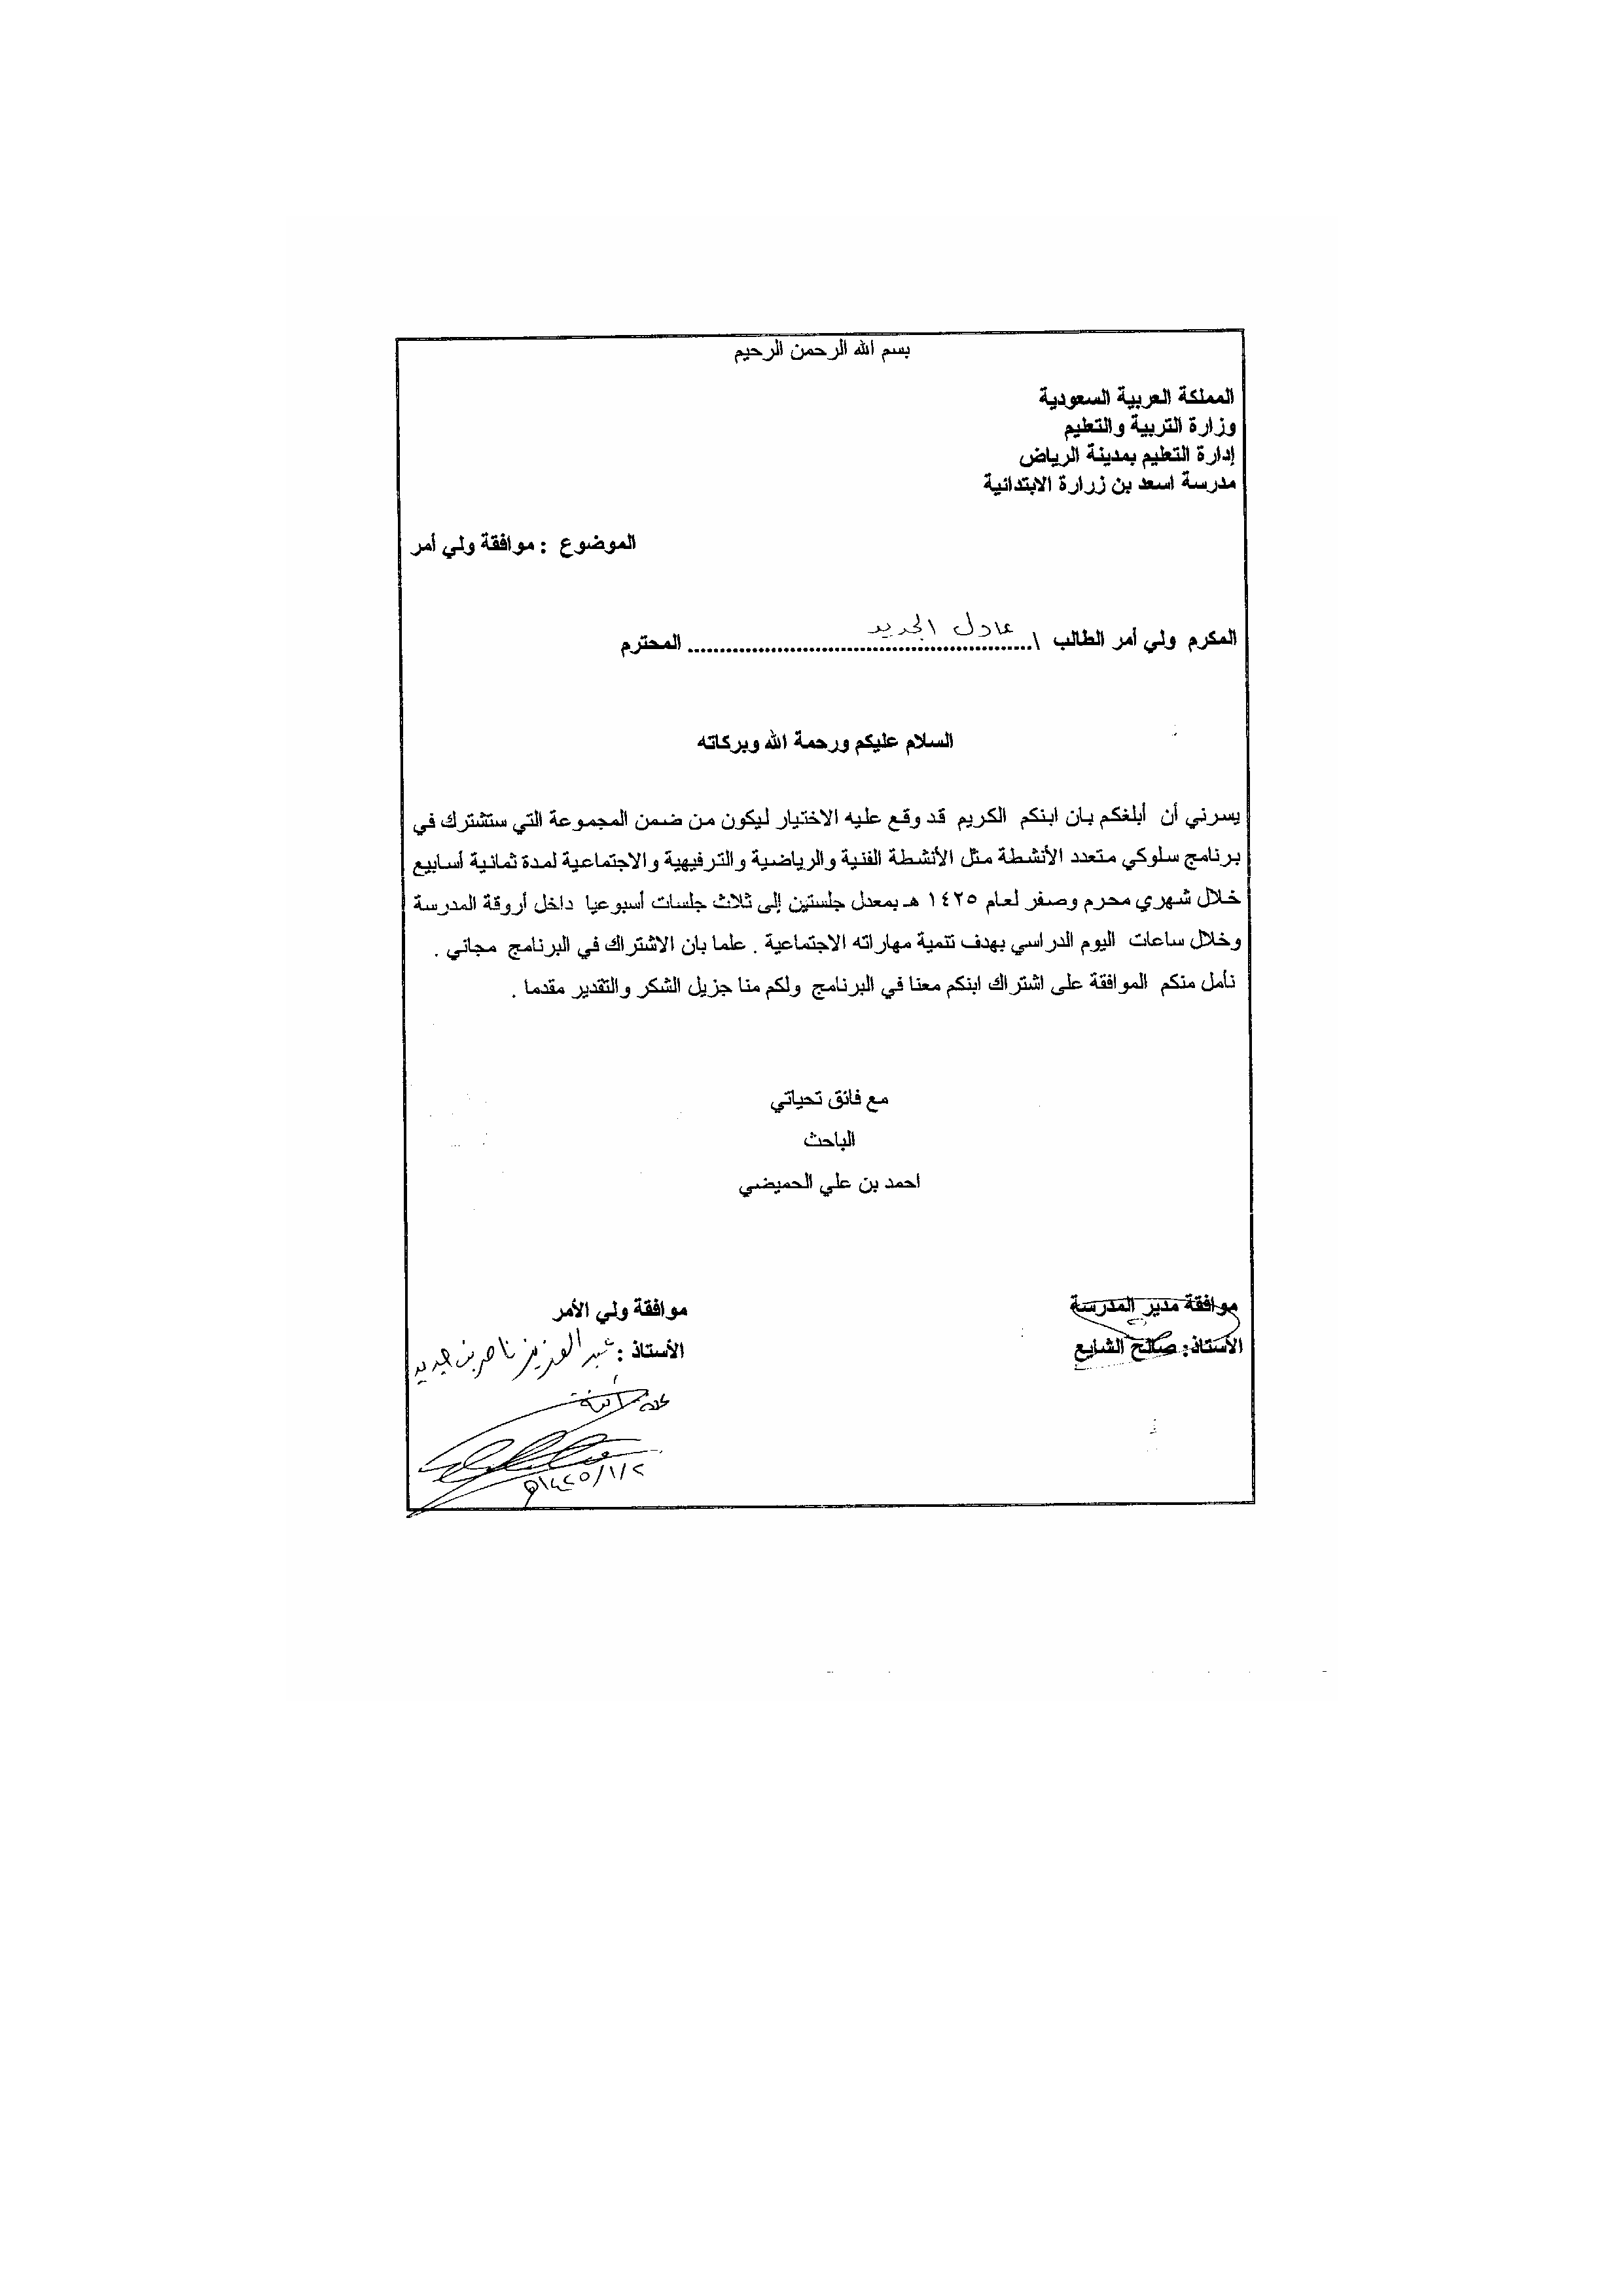 بسم الله الرحمن الرحيم
المملكة العربية السعودية
وزارة التربية والتعليم
إدارة التعليم بمدينة الرياض
مدرسة اسعد بن زرارة الابتدائية
الموضوع : موافقة ولي أمر
المكرم ولي أمر الطالب \ عادل الجديد المحترم
السلام عليكم ورحمة الله وبركاته
يسرني أن أبلغكم بان ابنكم الكريم قد وقع عليه الاختيار ليكون من ضمن المجموعة التي ستشترك في
برنامج سلوكي متعدد الأنشطة مثل الأنشطة الفنية والرياضية والترفيهية والاجتماعية لمدة ثمانية أسابيع
خلال شهري محرم وصفر لعام ١٤٢٥ هـ بمعدل جلستين إلى ثلاث جلسات أسبوعيا داخل أروقة المدرسة
وخلال ساعات اليوم الدراسي بهدف تنمية مهاراته الاجتماعية . علما بان الاشتراك في البرنامج مجاني .
نأمل منكم الموافقة على اشتراك ابنكم معنا في البرنامج ولكم منا جزيل الشكر والتقدير مقدما .
مع فائق تحياتي
الباحث
احمد بن علي الحميضي
موافقة مدير المدرسة
الأستاذ: صالح الشايع
موافقة ولي الأمر
الأستاذ : عبد العزيز ناصر بن جديد
١٤٢٥/١/٢هـ